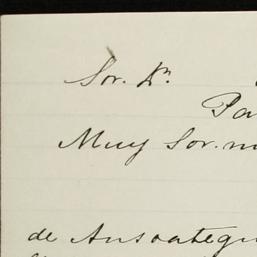 Sor. Dn.
Pa
Muy Sor. m
de Ansoategu